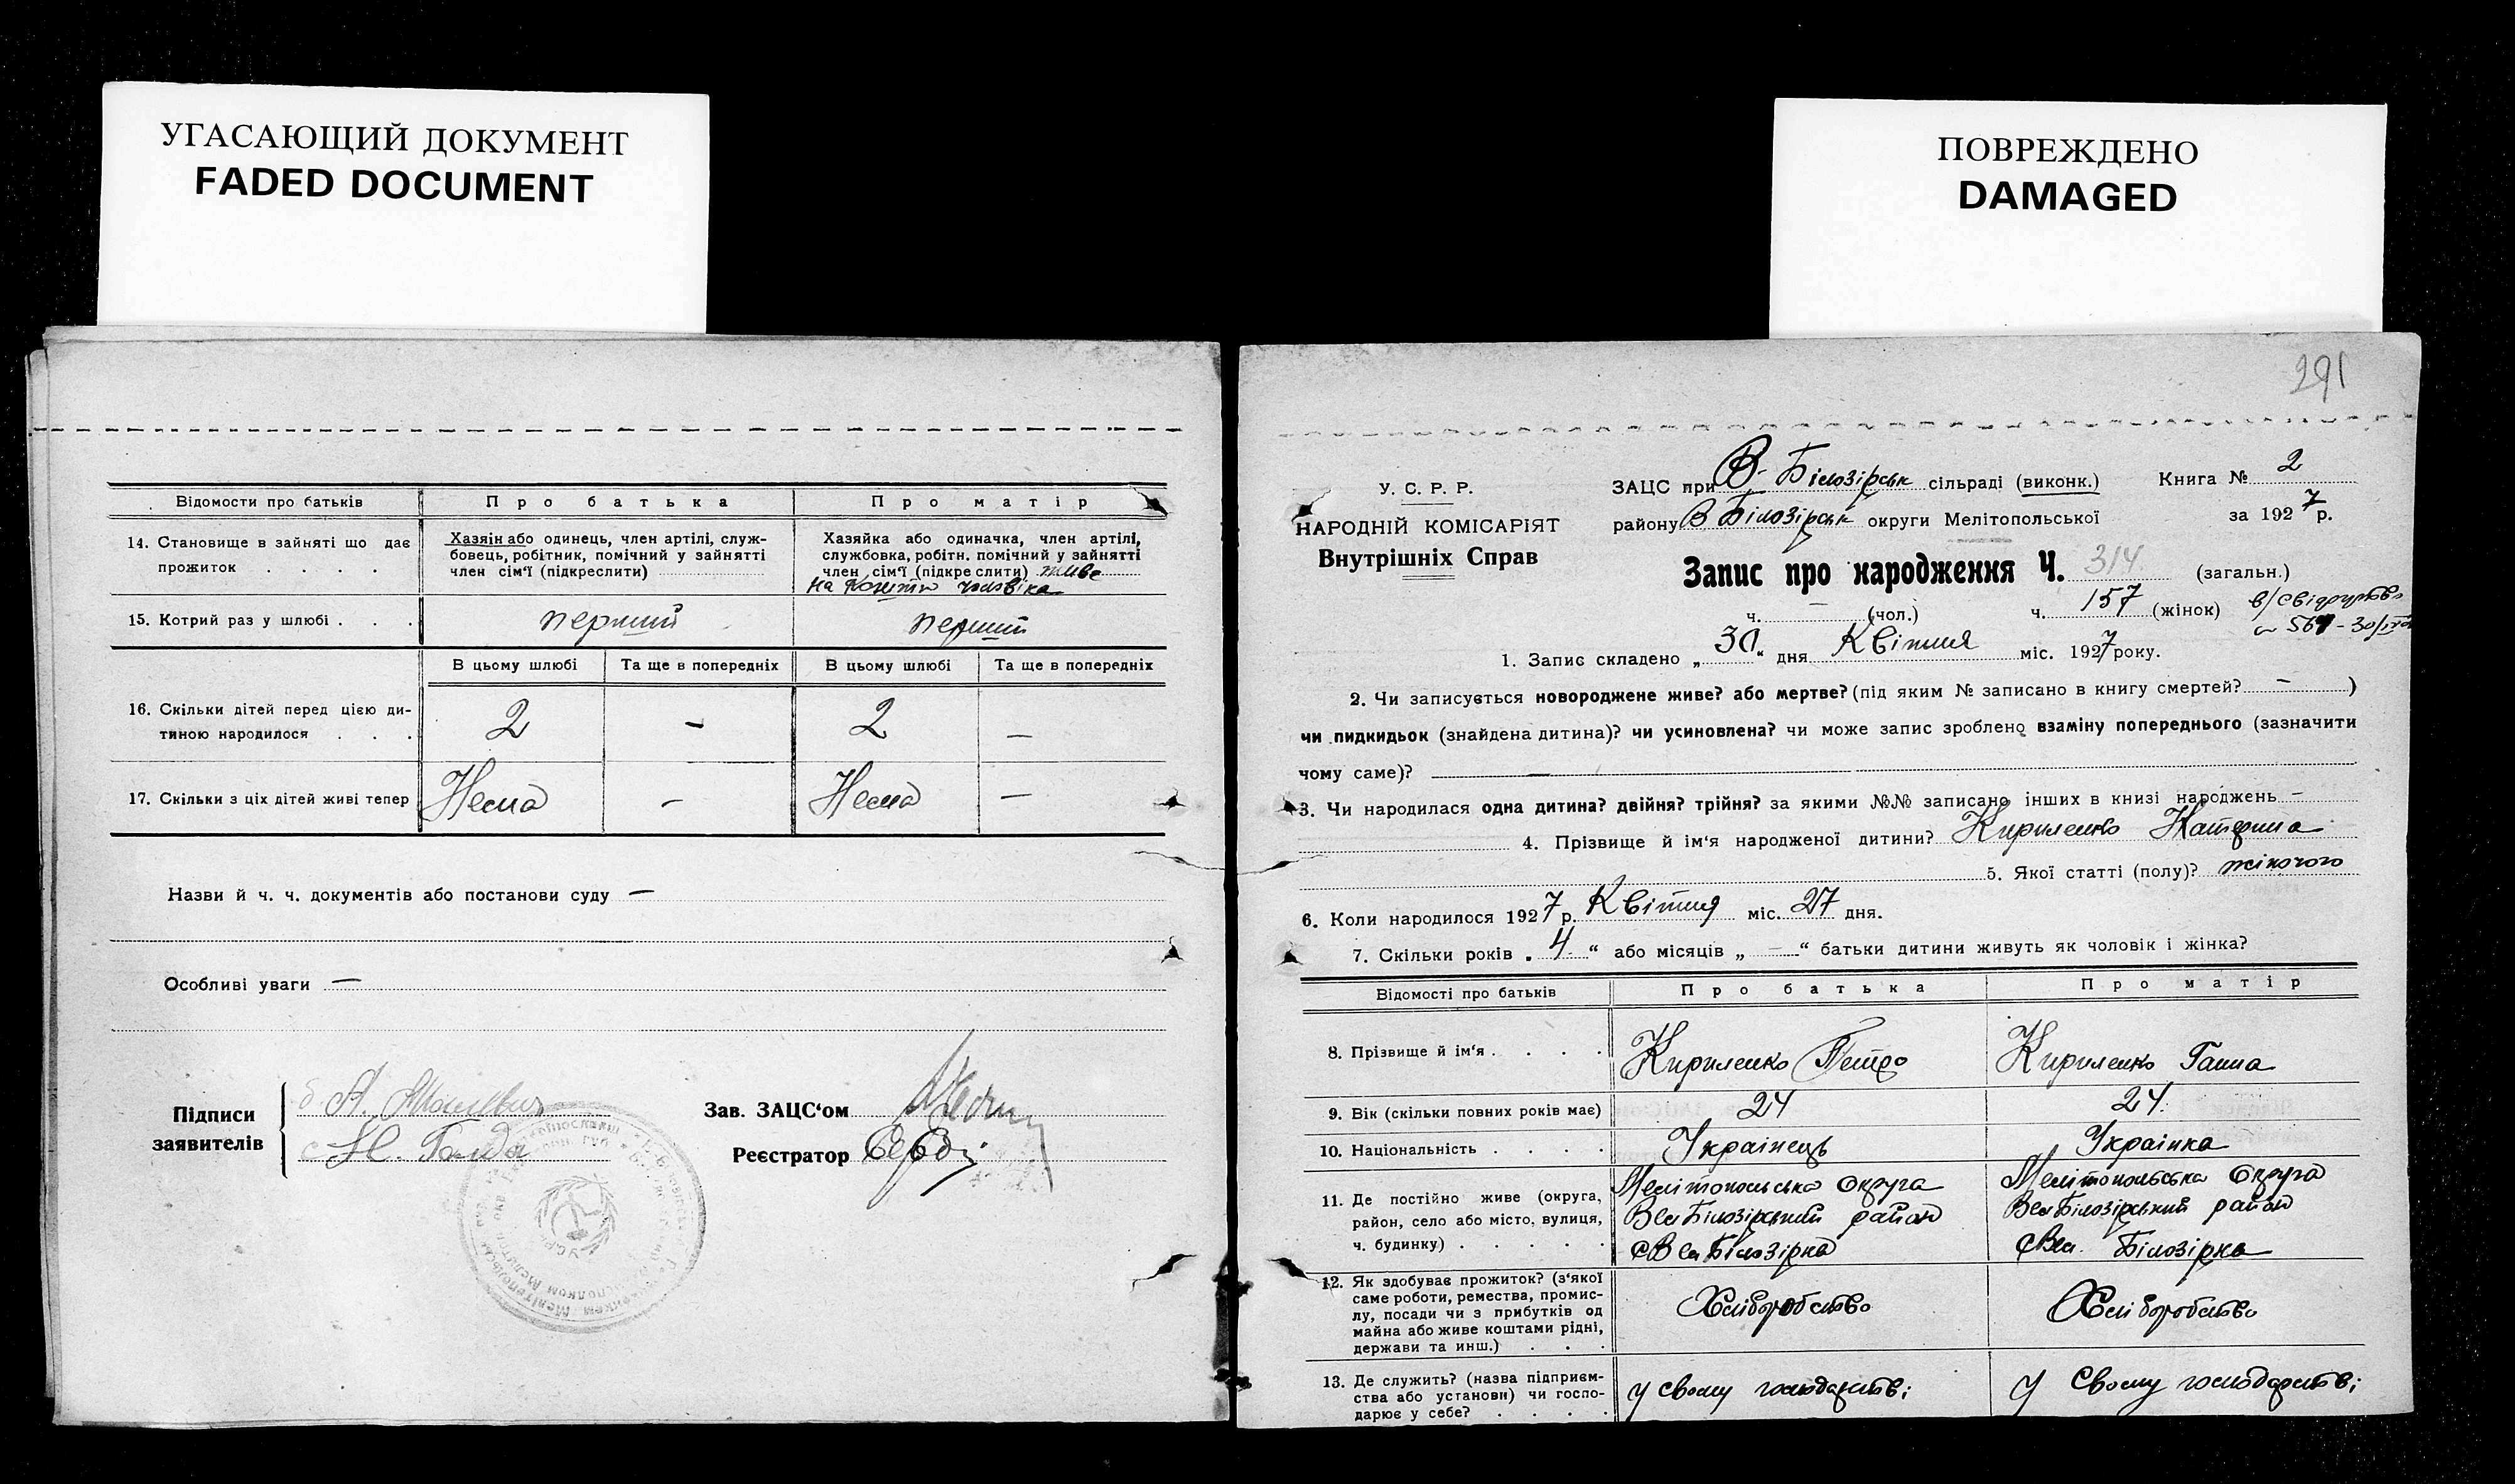 УГАСАЮЩИЙ ДОКУМЕНТ
FADED DOCUMENT
ПОВРЕЖДЕНО
DAMAGED
Відомости про батьків Про батька Про матір
14. Становище в зайняті що дає прожиток . . . .
Хазяїн або одинець, член артілі, служ-
бовець, робітник, помічний у зайнятті
член сім'ї (підкреслити)
Хазяйка або одиначка, член артілі,
службовка, робітн. помічний у зайнятті
член сім'ї (підкреслити) живе
на кошти чоловіка
15. Котрий раз у шлюбі . . . перший перший
В цьому шлюбі Та ще в попередніх В цьому шлюбі Та ще в попередніх
16. Скільки дітей перед цією ди-
тиною народилося . . . 2 - 2 -
17. Скільки з ціх дітей живі тепер Нема - Нема -
Назви й ч. ч. документів або постанови суду —
Особливі уваги —
Підписи
заявителів
Зав. ЗАЦС'ом
Реєстратор
291
У. С. Р. Р.
НАРОДНІЙ КОМІСАРІЯТ
Внутрішніх Справ
ЗАЦС при В-Білозірськ сільраді (виконк.) Книга № 2
району В Білозірськ округи Мелітопольської за 1927 р.
Запис про народження Ч. 314 (загальн.)
ч. — (чол.) ч. 157 (жінок)
1. Запис складено „30“ дня Квітня міс. 1927 року.
2. Чи записується новороджене живе? або мертве? (під яким № записано в книгу смертей? — )
чи пидкидьок (знайдена дитина)? чи усиновлена? чи може запис зроблено взаміну попереднього (зазначити
чому саме)? —
3. Чи народилася одна дитина? двійня? трійня? за якими №№ записано інших в книзі народжень —
4. Прізвище й ім'я народженої дитини? Кириленко Катерина
5. Якої статті (полу)? жіночого
6. Коли народилося 1927 р. Квітня міс. 27 дня.
7. Скільки років „4“ або місяців „—“ батьки дитини живуть як чоловік і жінка?
Відомості про батьків Про батька Про матір
8. Прізвище й ім'я . . . . Кириленко Петро Кириленко Ганна
9. Вік (скільки повних років має) 24 24
10. Національність . . . . Українець Українка
11. Де постійно живе (округа,
район, село або місто, вулиця,
ч. будинку) . . . . .
Мелітопольська округа
Вел Білозірський район
с Вел Білозірка
Мелітопольська округа
Вел Білозірський район
с Вел. Білозірка
12. Як здобуває прожиток? (з'якої
саме роботи, ремества, промис-
лу, посади чи з прибутків од
майна або живе коштами рідні,
держави та инш.) . . .
Хліборобство Хліборобство
13. Де служить? (назва підприєм-
ства або установи) чи госпо-
дарює у себе? . . . .
У свому господарстві У свому господарстві